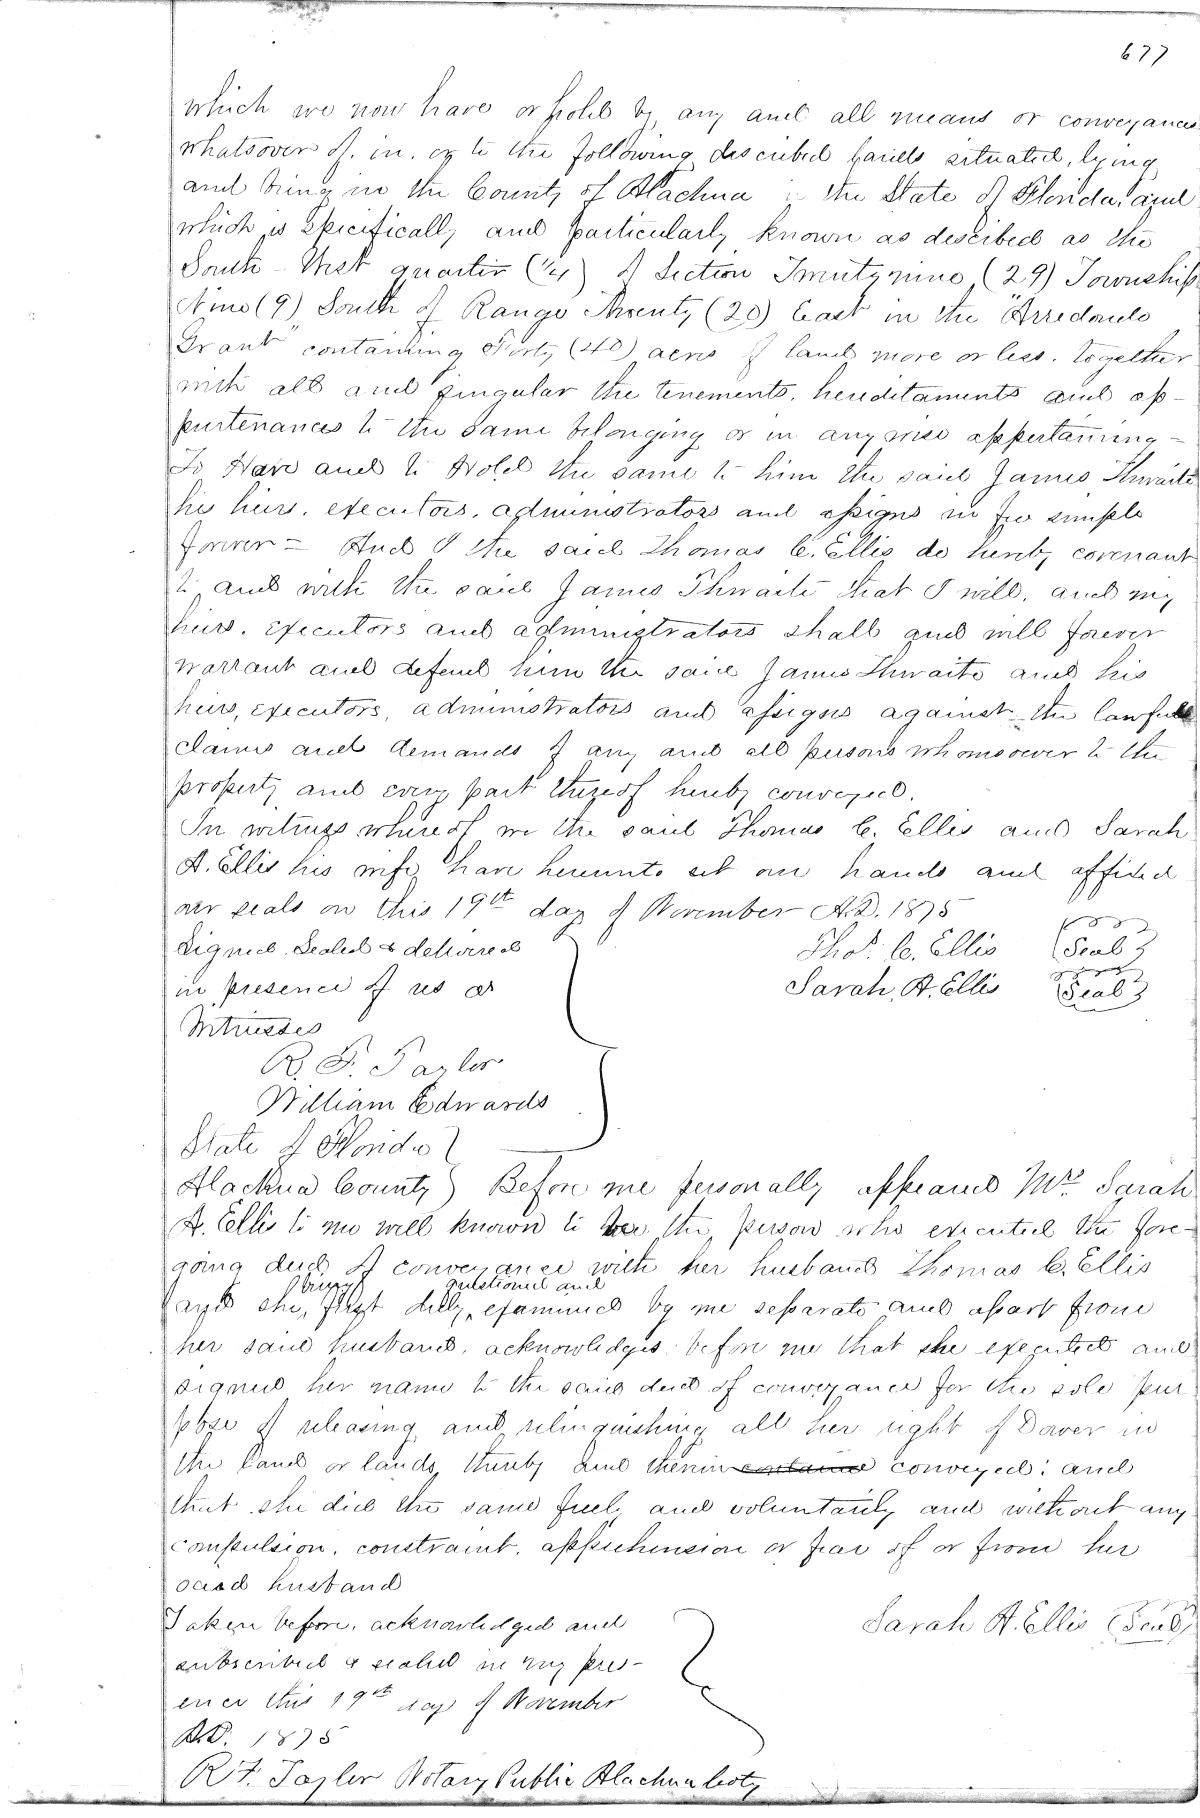 677
which we now have or hold by any and all means or conveyances
whatsover of. in. or to the following described parcels situated, lying
and being in the County of Alachua in the State of Florida, and
which is specifically and particularly known as described as the
South-West quarter (1/4) of Section Twenty nine (29) Township
Nine (9) South of Range Twenty (20) East in the "Arredondo
Grant" containing Forty (40) acres of land more or less. together
with all and singular the tenements. hereditaments and ap-
purtenances to the same belonging or in any wise appertaining-
To Have and to Hold the same to him the said James Thwaite
his heirs. executors. administrators and assigns in fee simple
forever= And I the said Thomas C. Ellis do hereby covenant
to and with the said James Thwaite that I will. and my
heirs. executors and administrators shall and will forever
warrant and defend him the said James Thwaite and his
heirs, executors, administrators and assigns against the lawful
claims and demands of any and all persons whomsoever to the
property and every part thereof hereby conveyed.
In witness whereof we the said Thomas C. Ellis and Sarah
A. Ellis his wife have hereunto set our hands and affixed
our seals on this 19th day of November A.D. 1875
Signed. Sealed & delivered
in presence of us as
Witnesses
Thos. C. Ellis (Seal)
Sarah, A. Ellis (Seal)
R. F. Taylor
William Edwards
State of Florida }
Alachua County } Before me personally appeared Mrs. Sarah
A. Ellis to me well known to be the person who executed the fore-
going deed of conveyance with her husband Thomas C. Ellis
being questioned and
and she, first duly, examined by me separate and apart from
her said husband. acknowledges before me that she executed and
signed her name to the said deed of conveyance for the sole pur
pose of releasing and relinquishing all her right of Dower in
the land or lands thereby and therein contained conveyed: and
that she did the same freely and voluntarily and without any
compulsion. constraint. apprehension or fear of or from her
said husband
Taken before. acknowledged and
subscribed & sealed in my pres-
ence this 19th day of November
A.D. 1875
Sarah A. Ellis (Seal)
R F. Taylor Notary Public Alachua Coty